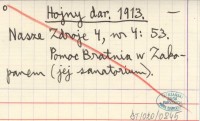 Hojny dar. 1913. —
Nasze Zdroje 4, nr 4: 53.
Pomoc Bratnia w Zako-
panem (jej sanatorium).